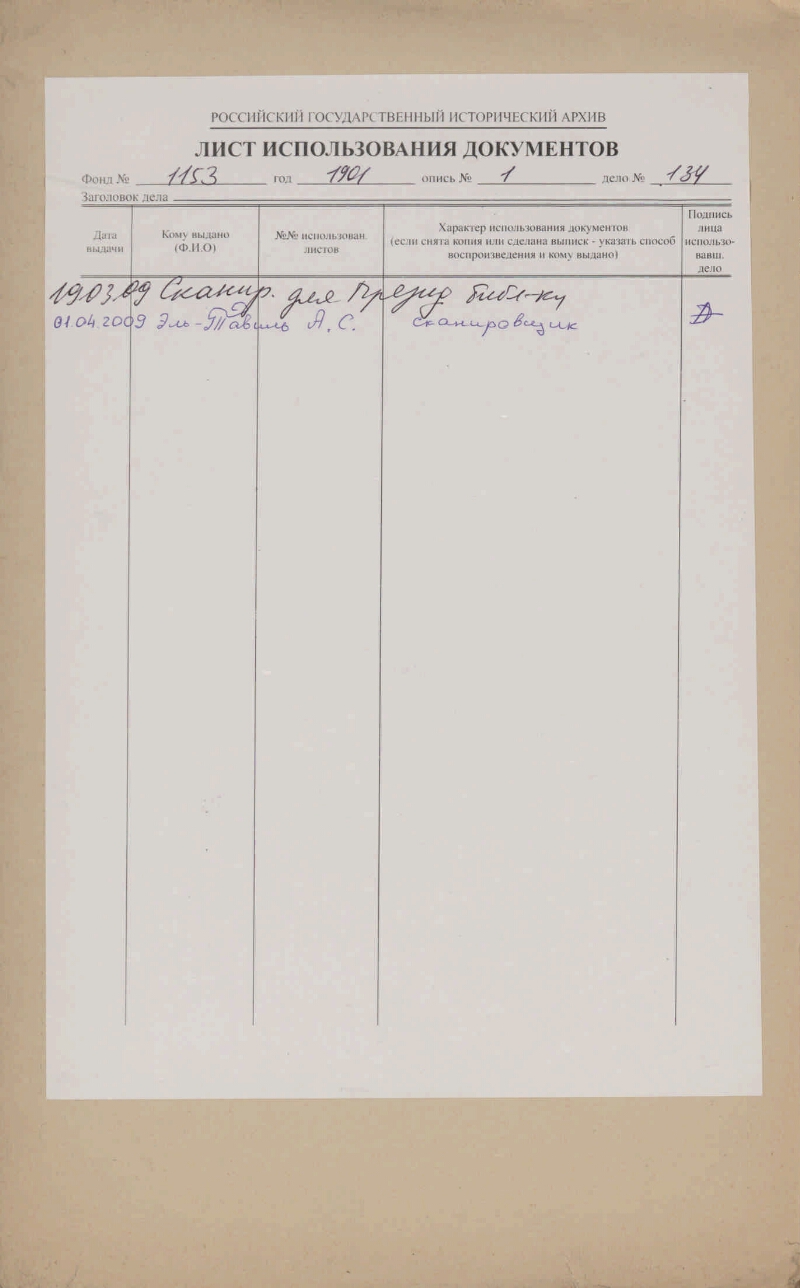 РОССИЙСКИЙ ГОСУДАРСТВЕННЫЙ ИСТОРИЧЕСКИЙ АРХИВ
ЛИСТ ИСПОЛЬЗОВАНИЯ ДОКУМЕНТОВ
Фонд № 1153 год 1901 опись № 1 дело № 134
Заголовок дела
Дата выдачи
Кому выдано
(Ф.И.О)
№№ использован.
листов
Характер использования документов
(если снята копия или сделана выписк - указать способ
воспроизведения и кому выдано)
Подпись
лица
использо-
вавш.
дело
19.03.09 Сканир. для Презид библ-ку
01.04.2009 Эль-Тавиль А. С. сканировщик